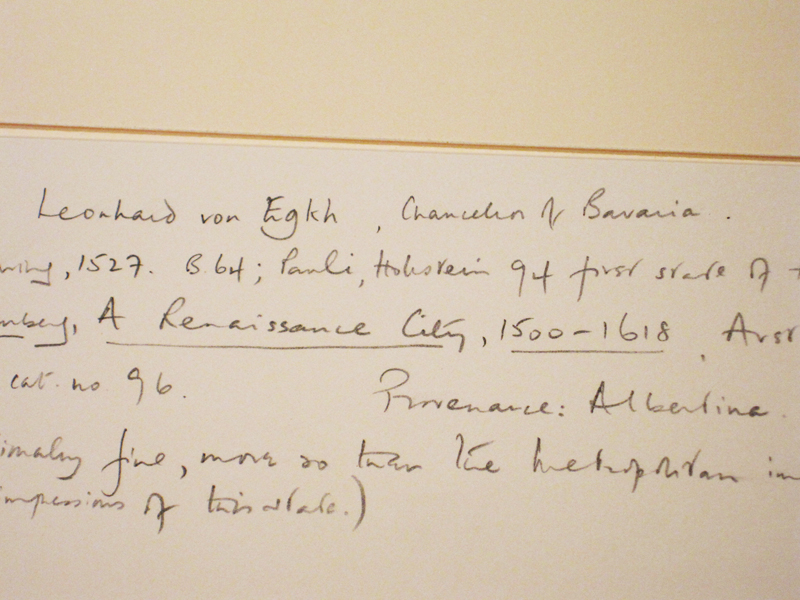 Leonhard von Egkh, Chancellor of Bavaria.
1527. B.64; Pauli, Hollstein 94 first state of
A Renaissance City, 1500-1618,
cat. no 96. Provenance: Albertina.
fine, more so than the Metropolitan
impressions of this state.)